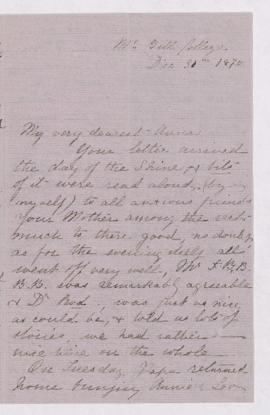 Mc Gill College.
Dec 30th 1870
My very dearest Annie
Your letter arrived
the day of the Shine & bits
of it were read aloud, (by
myself) to all anxious friends
Your Mother among the rest
much to there good, no doubt,
as for the evening itself all
went off very well, Mr
B.B. was remarkably agreeable
& Dr Rod... was just as nice
as could be, & told us lots of
stories, we had rather a
nice time on the whole
On Tuesday Papa returned
home bringing Annie